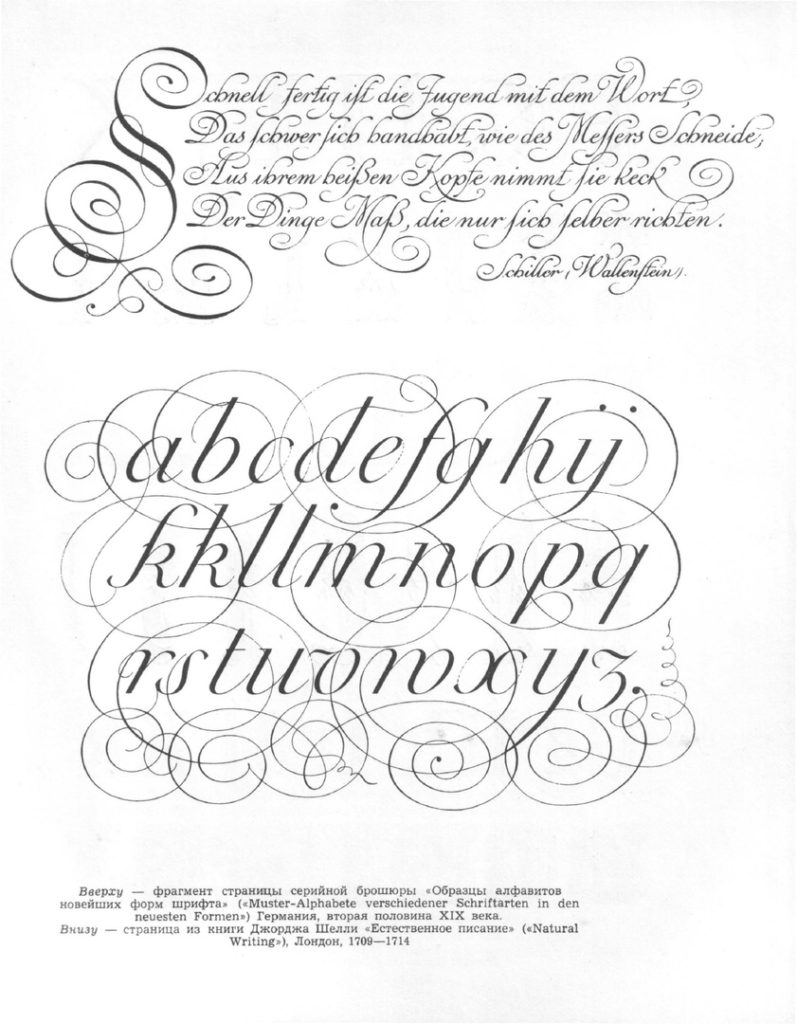 Schnell fertig iſt die Jugend mit dem Wort,
Das ſchwer ſich handhabt, wie des Meſſers Schneide,
Aus ihrem heißen Kopfe nimmt ſie keck
Der Dinge Maß, die nur ſich ſelber richten.
Schiller (Wallenſtein).
abcdefghij
kkllmnopq
rstuvwxyz.
Вверху — фрагмент страницы серийной брошюры «Образцы алфавитов
новейших форм шрифта» («Muster-Alphabete verschiedener Schriftarten in den
neuesten Formen») Германия, вторая половина XIX века.
Внизу — страница из книги Джорджа Шелли «Естественное писание» («Natural
Writing»), Лондон, 1709—1714